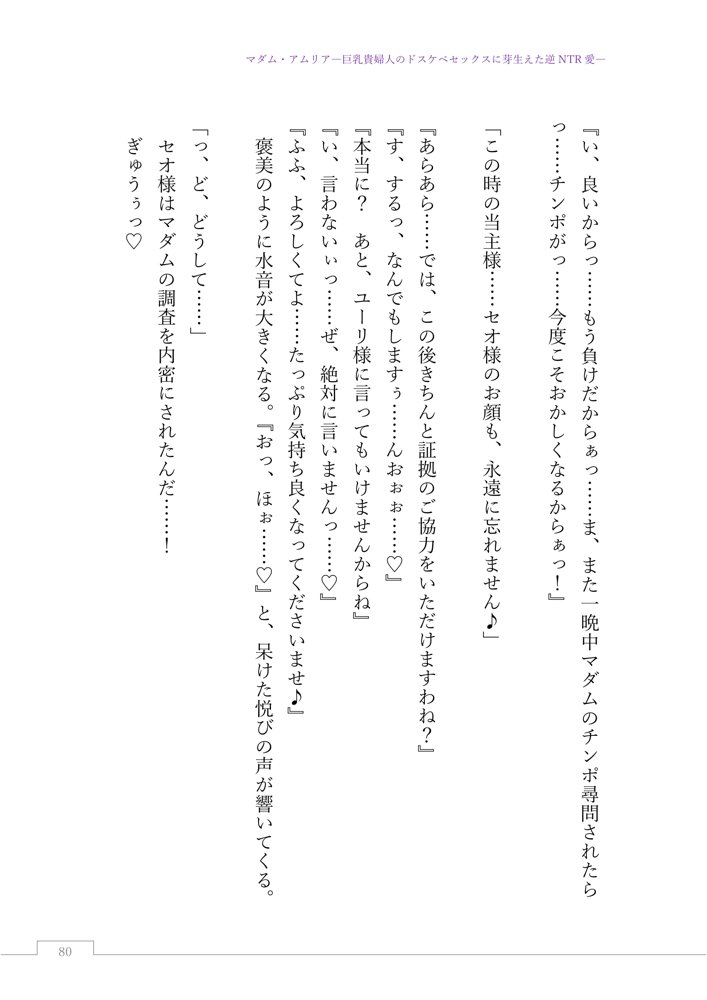 マダム・アムリア―巨乳貴婦人のドスケベセックスに芽生えた逆NTR愛―
『い、良いからっ……もう負けだからぁっ……ま、また一晩中マダムのチンポ尋問されたら
っ……チンポがっ……今度こそおかしくなるからぁっ！』
「この時の当主様……セオ様のお顔も、永遠に忘れません♪」
『あらあら……では、この後きちんと証拠のご協力をいただけますわね？』
『す、するっ、なんでもしますぅ……んおぉぉ……♡』
『本当に？　あと、ユーリ様に言ってもいけませんからね』
『い、言わないぃっ……ぜ、絶対に言いませんっ……♡』
『ふふ、よろしくてよ……たっぷり気持ち良くなってくださいませ♪』
褒美のように水音が大きくなる。『おっ、ほぉ……♡』と、呆けた悦びの声が響いてくる。
「っ、ど、どうして……」
セオ様はマダムの調査を内密にされたんだ……！
ぎゅうぅっ♡
80